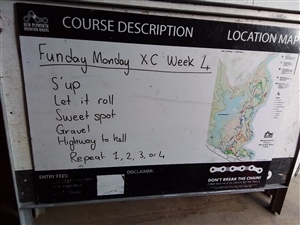 NEW PLYMOUTH
MOUNTAIN BIKERS
COURSE DESCRIPTION
LOCATION MAP
Funday Monday XC Week 4
S'up
Let it roll
Sweet spot
Gravel
Highway to hell
Repeat 1, 2, 3, or 4
ENTRY FEES:
DISCLAIMER:
DON'T BREAK THE CHAIN!